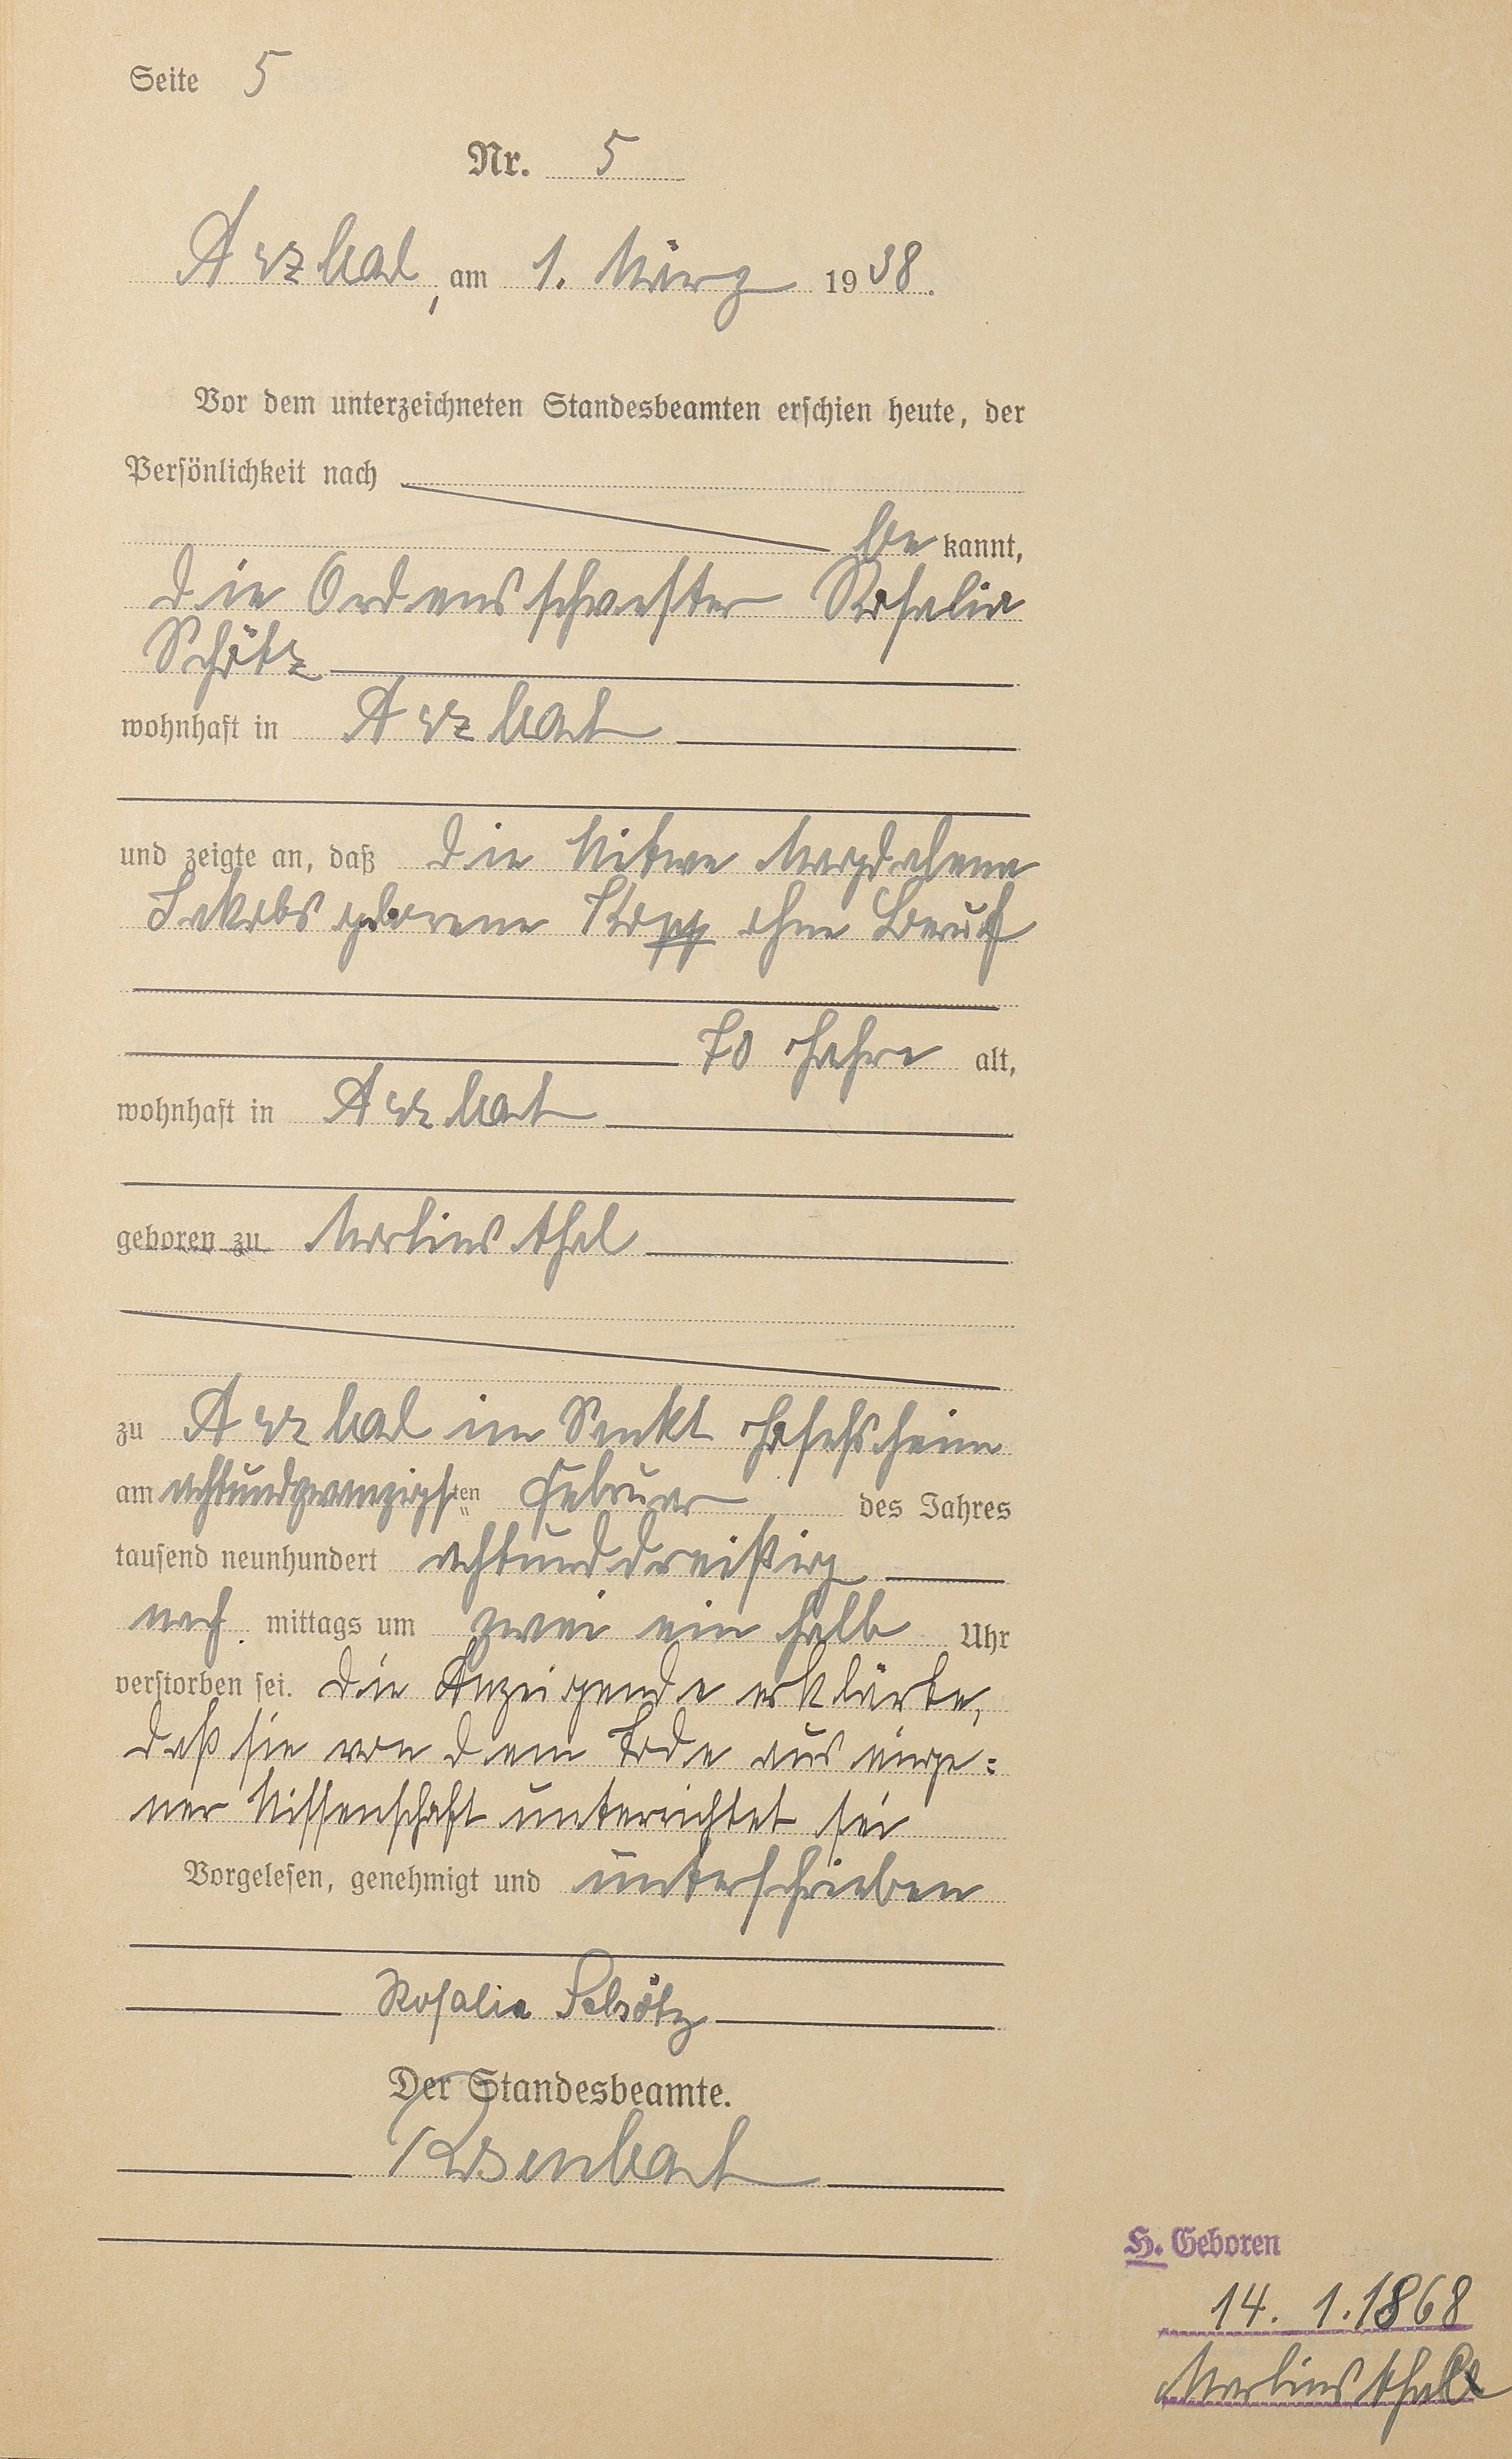 Seite 5
Nr. 5
Arzbach, am 1. März 1938.
Vor dem unterzeichneten Standesbeamten erschien heute, der
Persönlichkeit nach
be kannt,
die Ordensschwester Rosalia
Schötz
wohnhaft in Arzbach
und zeigte an, daß die Witwe Magdalena
Jakobs geborene Kopp ohne Beruf
70 Jahre alt,
wohnhaft in Arzbach
geboren zu
zu Arzbach im Sankt Josefsheim
am achtundzwanzigsten Februar des Jahres
tausend neunhundert achtunddreißig
nach mittags um zwei ein halb Uhr
verstorben sei. Die Anzeigende erklärte,
daß sie von dem Tode aus eige=
ner Wissenschaft unterrichtet sei
Vorgelesen, genehmigt und unterschrieben
Rosalia Schötz
Der Standesbeamte.
H. Geboren
14. 1. 1868